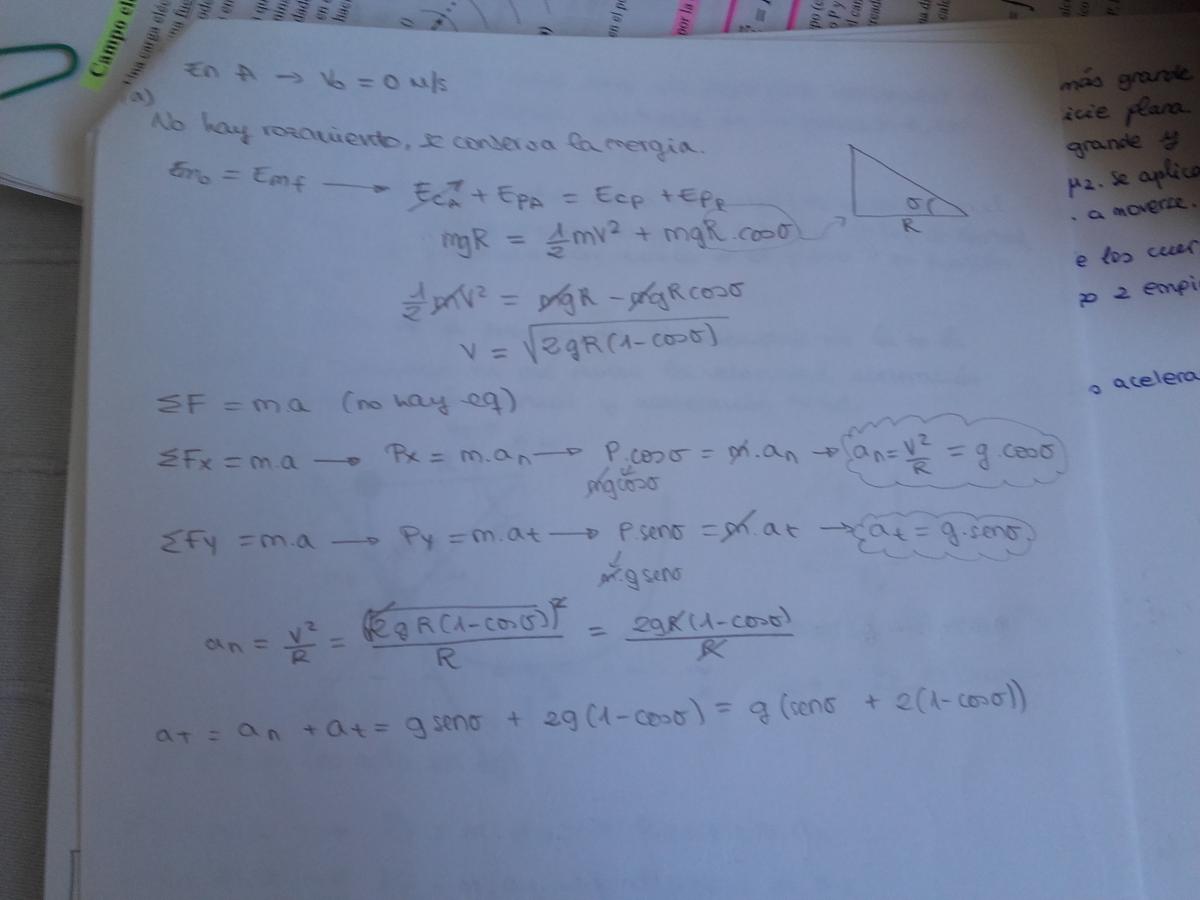 Campo el
Una carga eléc
en el p
por la
En A → V₀ = 0 m/s
(a)
No hay rozamiento, se conserva la energia.
Em₀ = Emf → EcA + EPA = EcP + EPP
mgR = 1/2 mv² + mgR.cosσ
σ
R
1/2 mV² = mgR - mgRcosσ
V = √2gR(1-cosσ)
ΣF = m.a (no hay eq)
ΣFx = m.a → Px = m.an → P.cosσ = m.an → an = V²/R = g.cosσ
mgcosσ
ΣFy = m.a → Py = m.at → P.senσ = m.at → at = g.senσ
m.gsenσ
an = V²/R = (√2gR(1-cosσ))²/R = 2gR(1-cosσ)/R
aT = an + at = gsenσ + 2g(1-cosσ) = g(senσ + 2(1-cosσ))
más grande
icie plana.
grande y
μ2. se aplica
. a moverse.
e los cuer
po 2 empi
o acelera